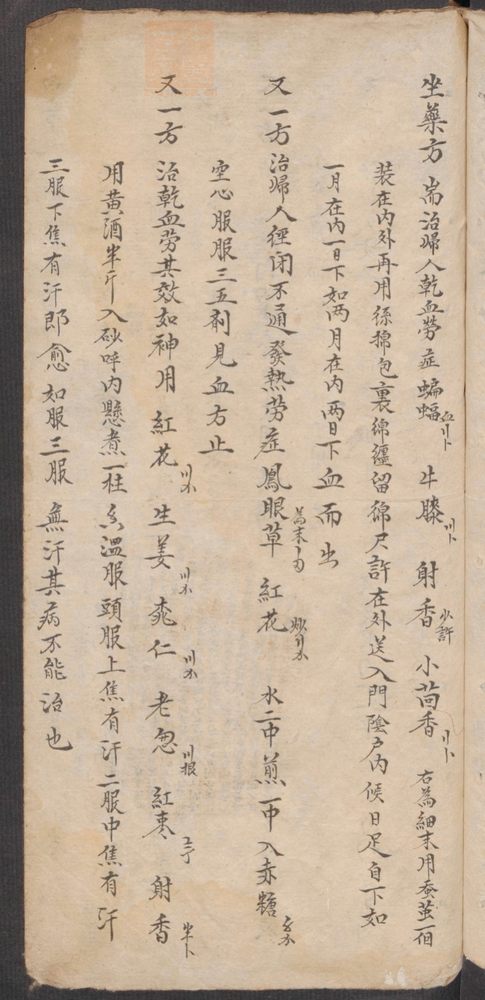 坐藥方 耑治婦人乾血勞症 蝙蝠 牛膝 射香少許 小茴香 右為細末用蚕茧一個
装在内外再用絲棉包裹綿纏留綿尺許在外送入門陰户内候日足自下如
一月在内一日下如两月在内两日下血而出
又一方治婦人經闭不通發熱勞症鳳眼草為末 紅花 水二中煎一中入赤糖
空心服服三五剤見血方止
又一方 治乾血劳其效如神用 紅花 生姜 桃仁 老怱 紅棗 射香
用黄酒半斤入砂呼内懸煮一柱香温服頭服上焦有汗二服中焦有汗
三服下焦有汗郎愈如服三服無汗其病不能治也